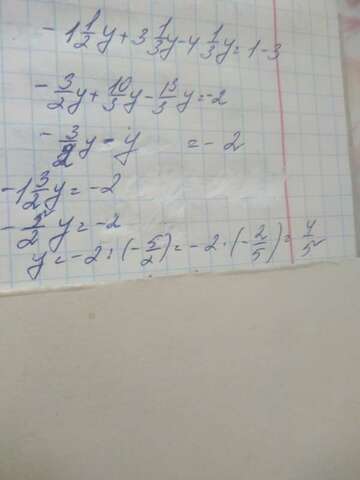 -1 1/2 y + 3 1/3 y - 4 1/3 y = 1 - 3
-3/2 y + 10/3 y - 13/3 y = -2
-3/2 y - y = -2
-1 3/2 y = -2
-5/2 y = -2
y = -2 : (-5/2) = -2 · (-2/5) = 4/5